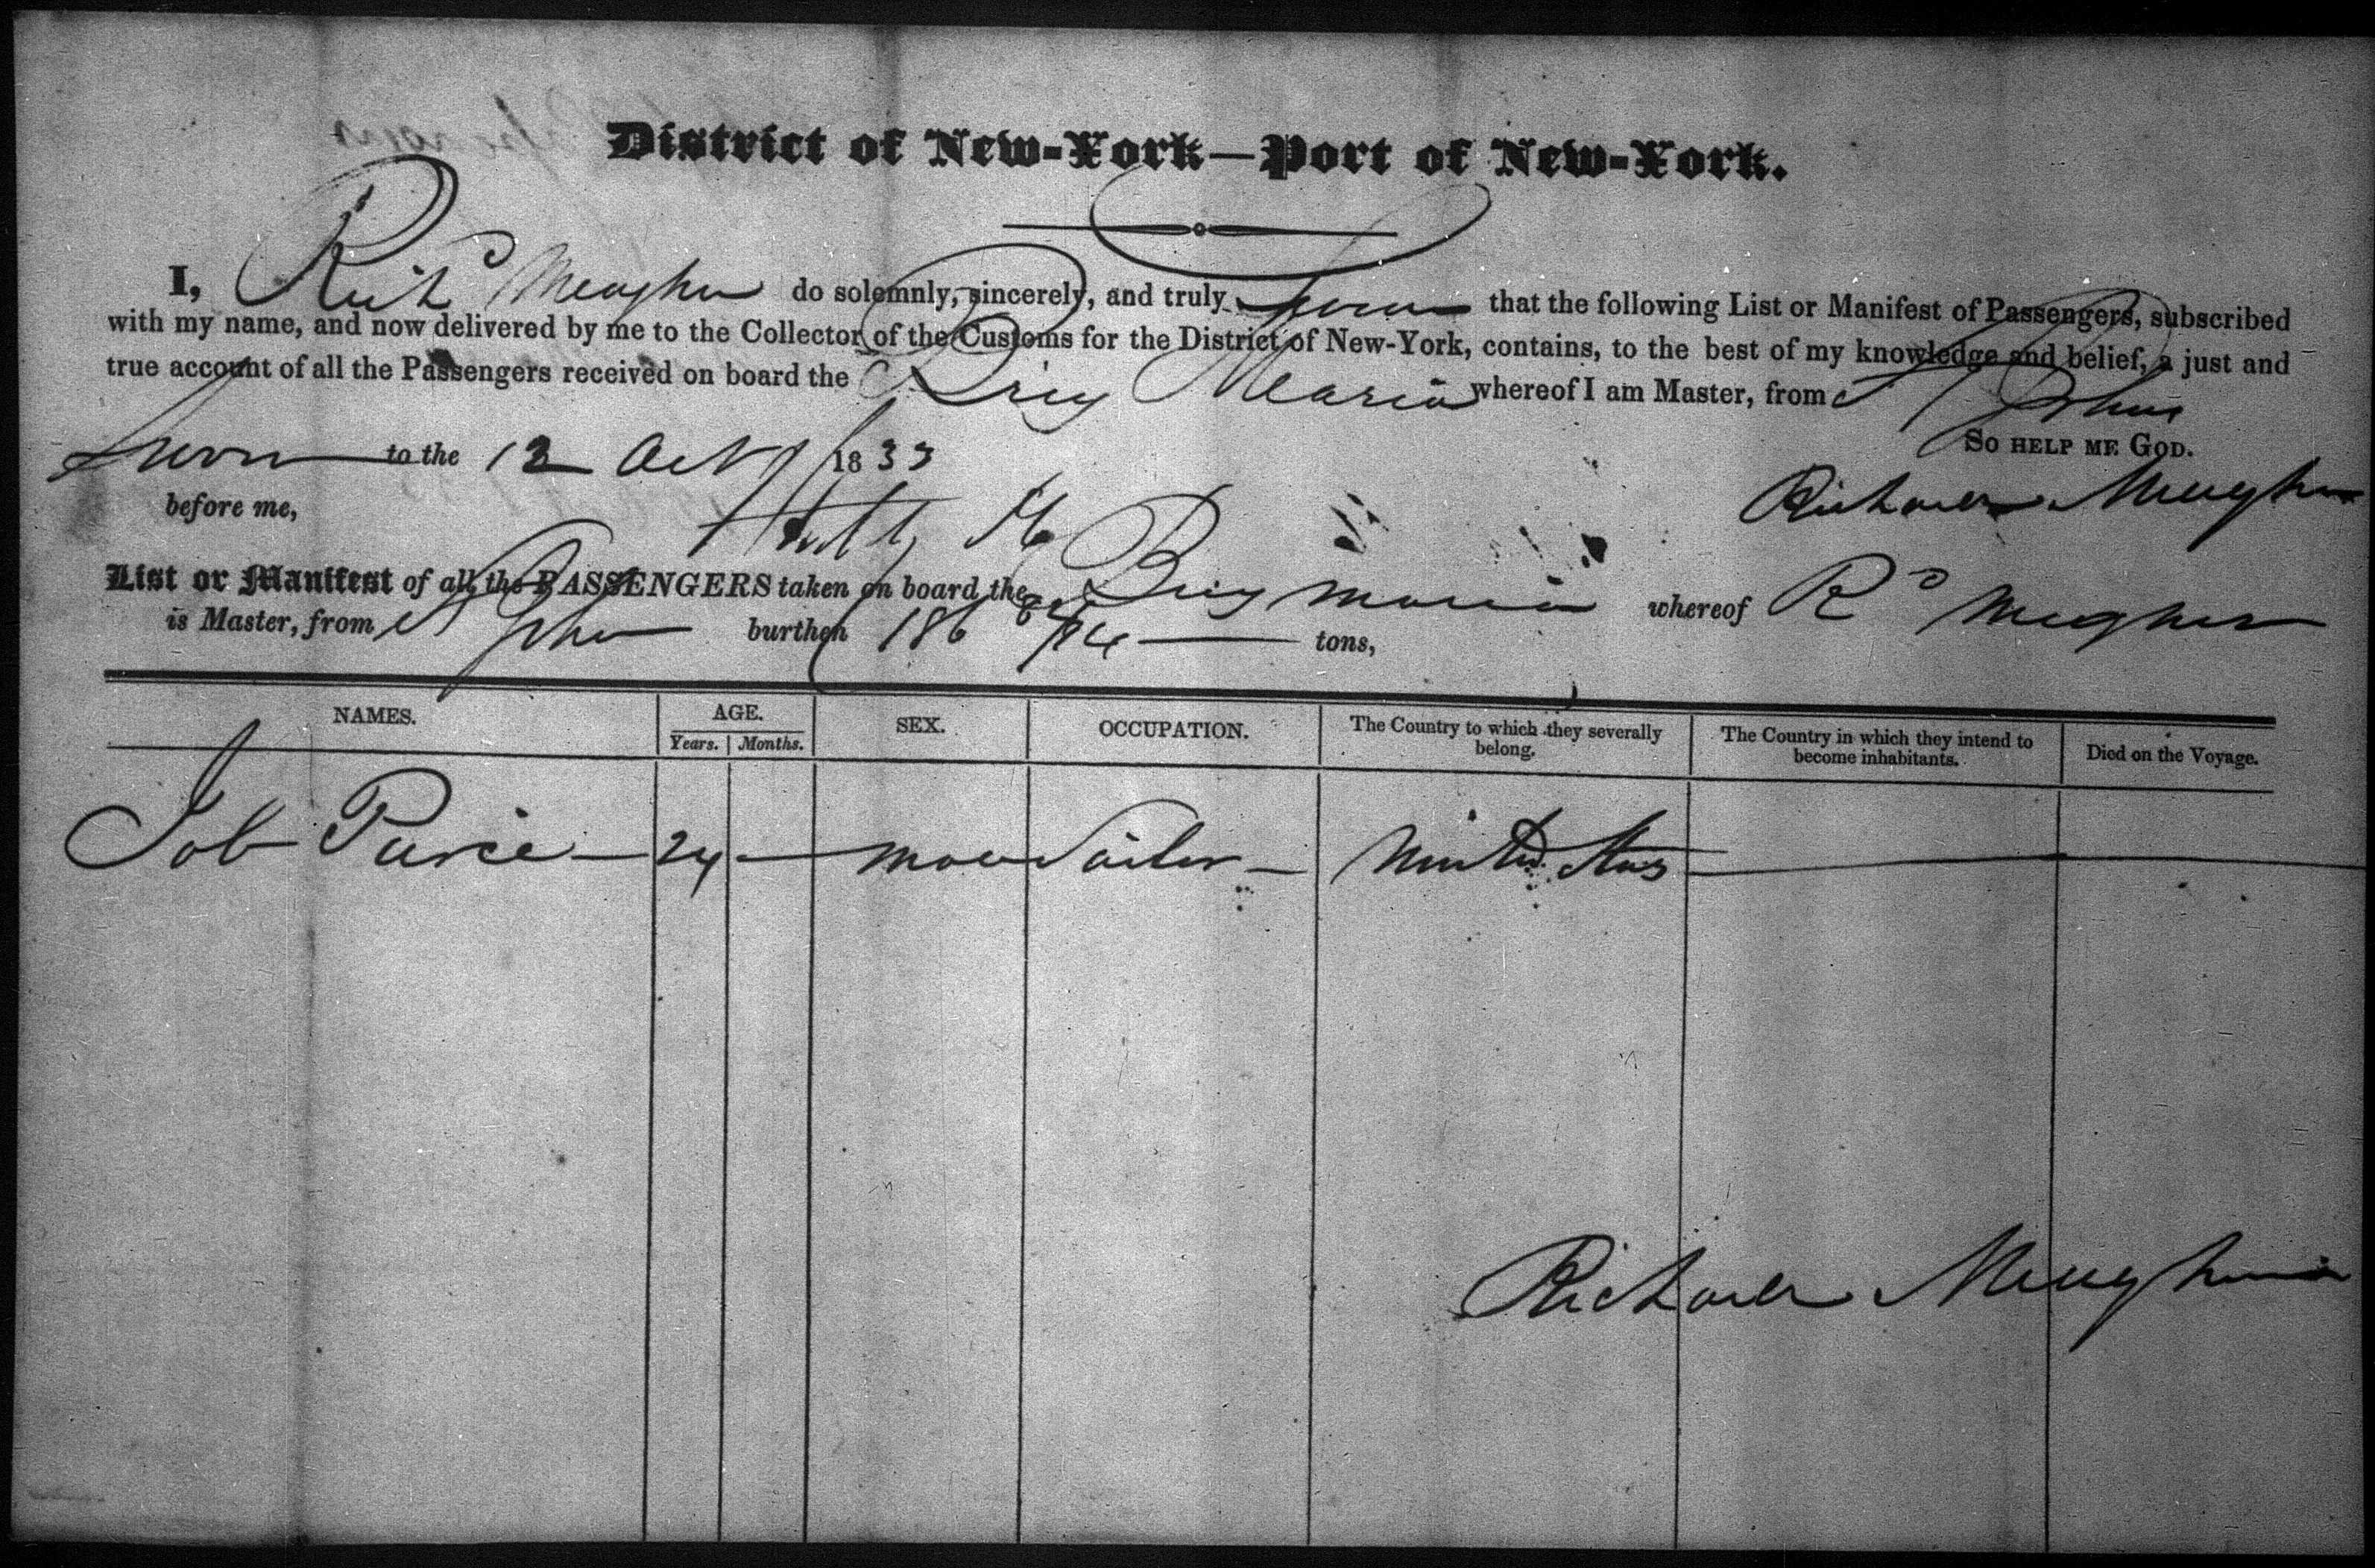 District of New-York—Port of New-York.
I, Richd Meagher do solemnly, sincerely, and truly swear that the following List or Manifest of Passengers, subscribed
with my name, and now delivered by me to the Collector of the Customs for the District of New-York, contains, to the best of my knowledge and belief, a just and
true account of all the Passengers received on board the Brig Maria whereof I am Master, from St Johns
Sworn to the 12 Oct 1833 So help me God.
before me, Richard Meagher
List or Manifest of all the PASSENGERS taken on board the Brig Maria whereof Rd Meagher
is Master, from St Johns burthen 186 /94 tons,
NAMES. AGE. SEX. OCCUPATION. The Country to which they severally belong. The Country in which they intend to become inhabitants. Died on the Voyage.
Years. Months.
Job Parce 24 Sailor United Stas
Richard Meagher